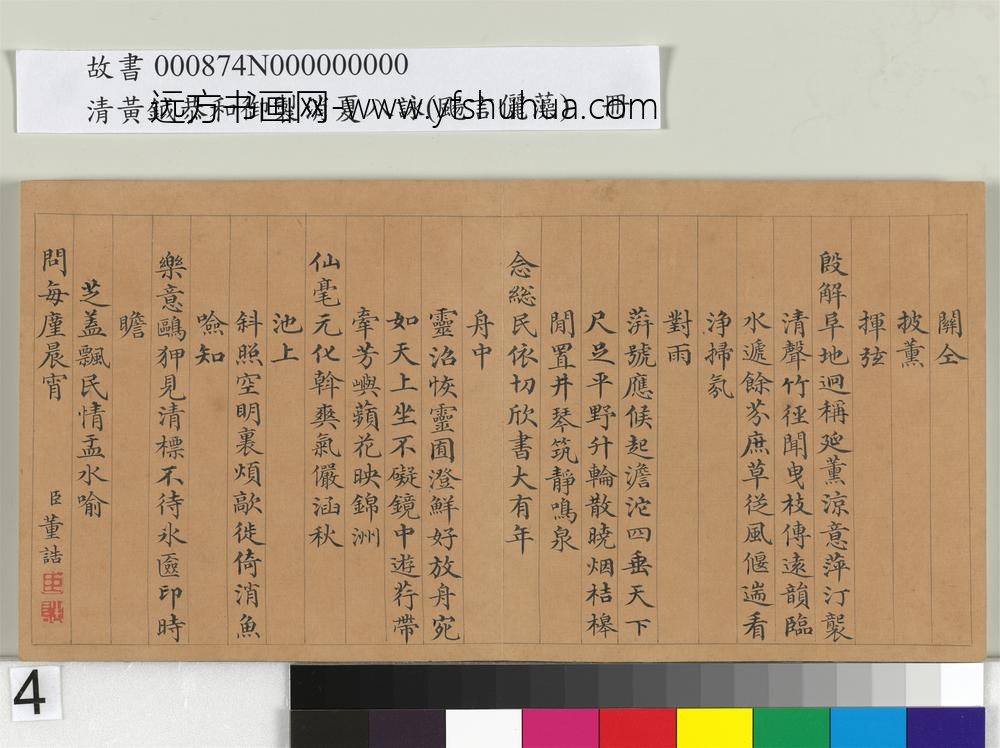 故書 000874N000000000
远方书画网-www.yfshuhua.com
清黃
關仝
披薰
揮弦
殷解阜地迥稱延薰涼意萍汀襲
清聲竹徑聞曳枝傳遠韻臨
水遞餘芬庶草從風偃遄看
淨掃氛
對雨
蓱號應候起澹沱四垂天下
尺足平野升輪散曉烟桔槔
閒置井琴筑靜鳴泉
念総民依切欣書大有年
舟中
靈沼恢靈囿澄鮮好放舟宛
如天上坐不礙鏡中遊荇帶
牽芳嶼蘋花映錦洲
仙毫元化斡爽氣儼涵秋
池上
斜照空明裏煩歊徙倚消魚
噞知
樂意鷗狎見清標不待氷匳印時
瞻
芝蓋飄民情盂水喻
問每廑晨宵 臣董誥
4